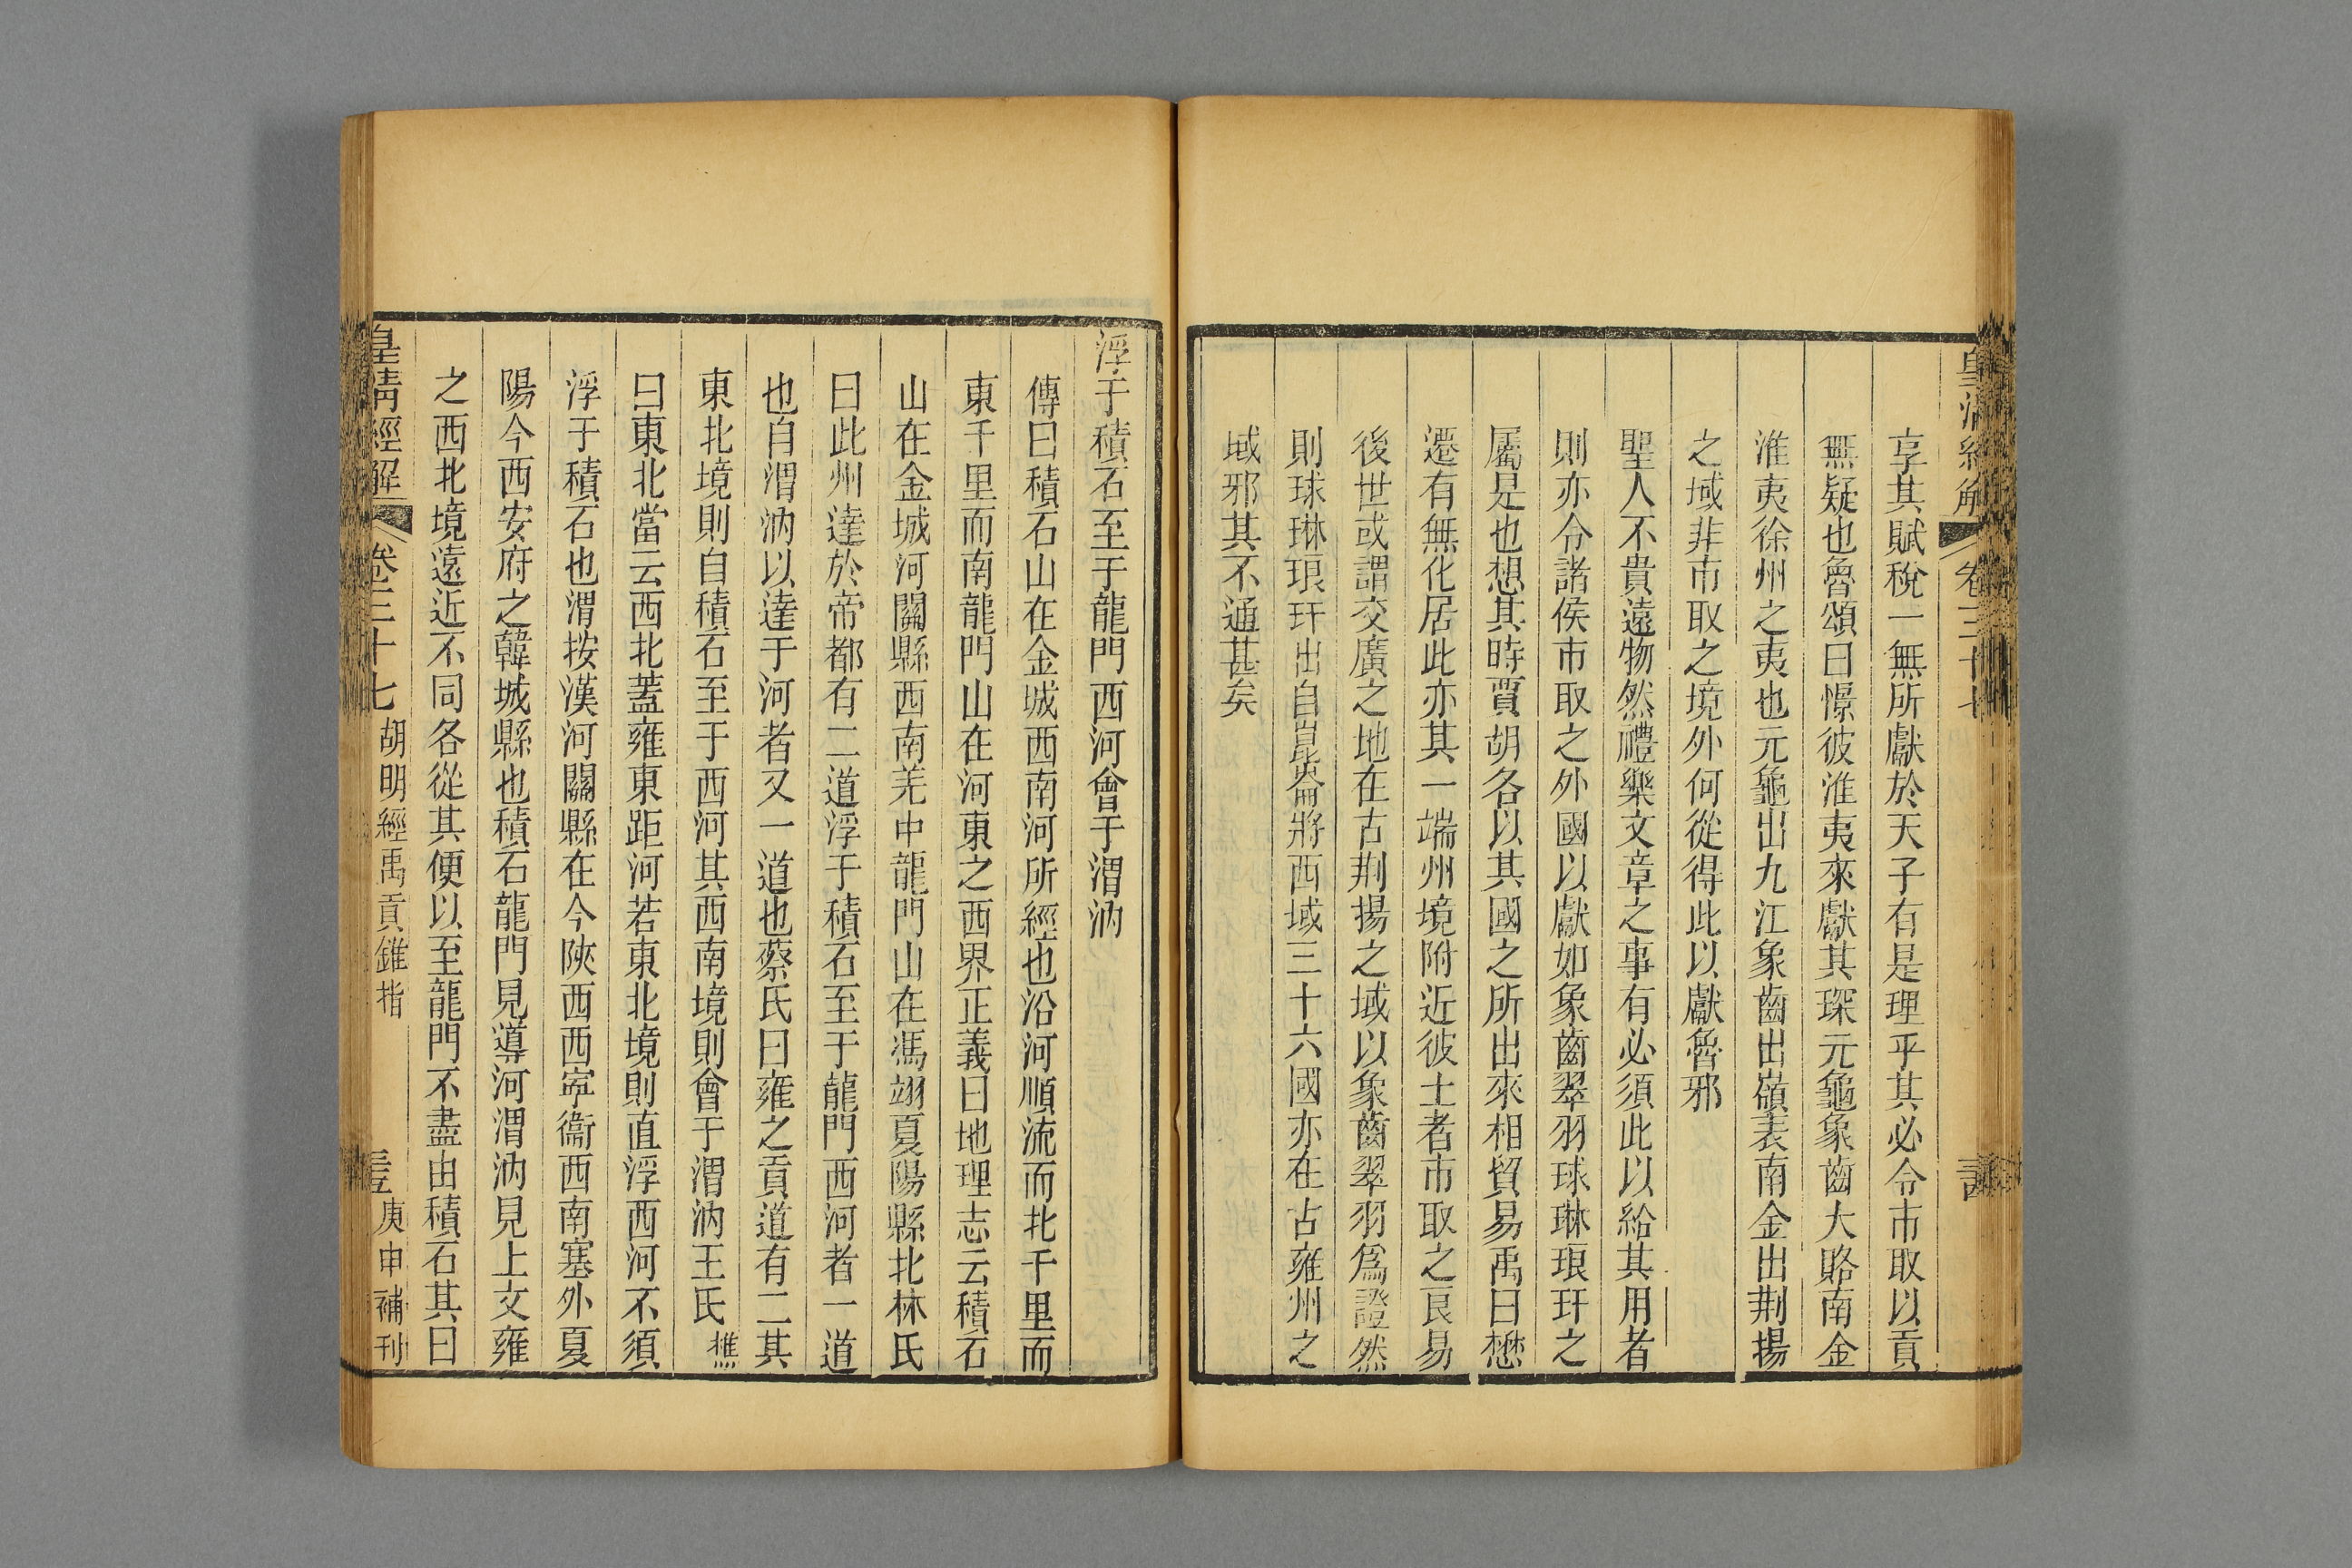 皇清經解 卷三十七
享其賦稅一無所獻於天子有是理乎其必令市取以貢
無疑也魯頌曰憬彼淮夷來獻其琛元龜象齒大賂南金
淮夷徐州之夷也元龜出九江象齒出嶺表南金出荆揚
之域非市取之境外何從得此以獻魯邪
聖人不貴遠物然禮樂文章之事有必須此以給其用者
則亦令諸侯市取之外國以獻如象齒翠羽球琳琅玕之
屬是也想其時賈胡各以其國之所出來相貿易禹曰懋
遷有無化居此亦其一端州境附近彼土者市取之良易
後世或謂交廣之地在古荆揚之域以象齒翠羽爲證然
則球琳琅玕出自崑崙將西域三十六國亦在古雍州之
域邪其不通甚矣
浮于積石至于龍門西河會于渭汭
傳曰積石山在金城西南河所經也沿河順流而北千里而
東千里而南龍門山在河東之西界正義曰地理志云積石
山在金城河關縣西南羌中龍門山在馮翊夏陽縣北林氏
曰此州達於帝都有二道浮于積石至于龍門西河者一道
也自渭汭以達于河者又一道也蔡氏曰雍之貢道有二其
東北境則自積石至于西河其西南境則會于渭汭王氏樵
曰東北當云西北蓋雍東距河若東北境則直浮西河不須
浮于積石也渭按漢河關縣在今陝西西寧衞西南塞外夏
陽今西安府之韓城縣也積石龍門見導河渭汭見上文雍
之西北境遠近不同各從其便以至龍門不盡由積石其曰
皇清經解 卷三十七 胡明經禹貢錐指 庚申補刊